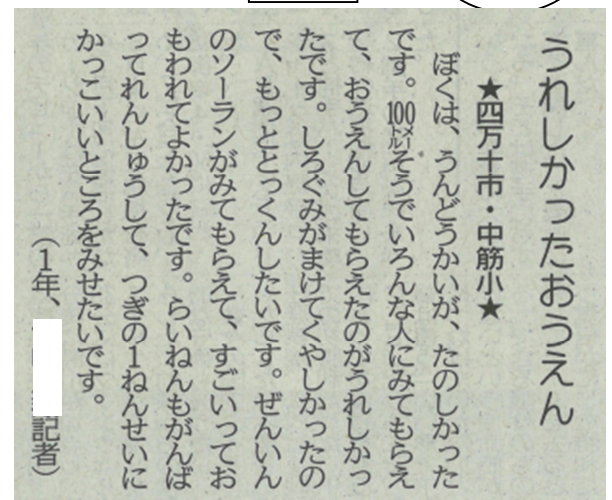 うれしかったおうえん
★四万十市・中筋小★
ぼくは、うんどうかいが、たのしかった
です。100㍍そうでいろんな人にみてもらえ
て、おうえんしてもらえたのがうれしかっ
たです。しろぐみがまけてくやしかったの
で、もっととっくんしたいです。ぜんいん
のソーランがみてもらえて、すごいってお
もわれてよかったです。らいねんもがんば
ってれんしゅうして、つぎの1ねんせいに
かっこいいところをみせたいです。
(1年、記者)